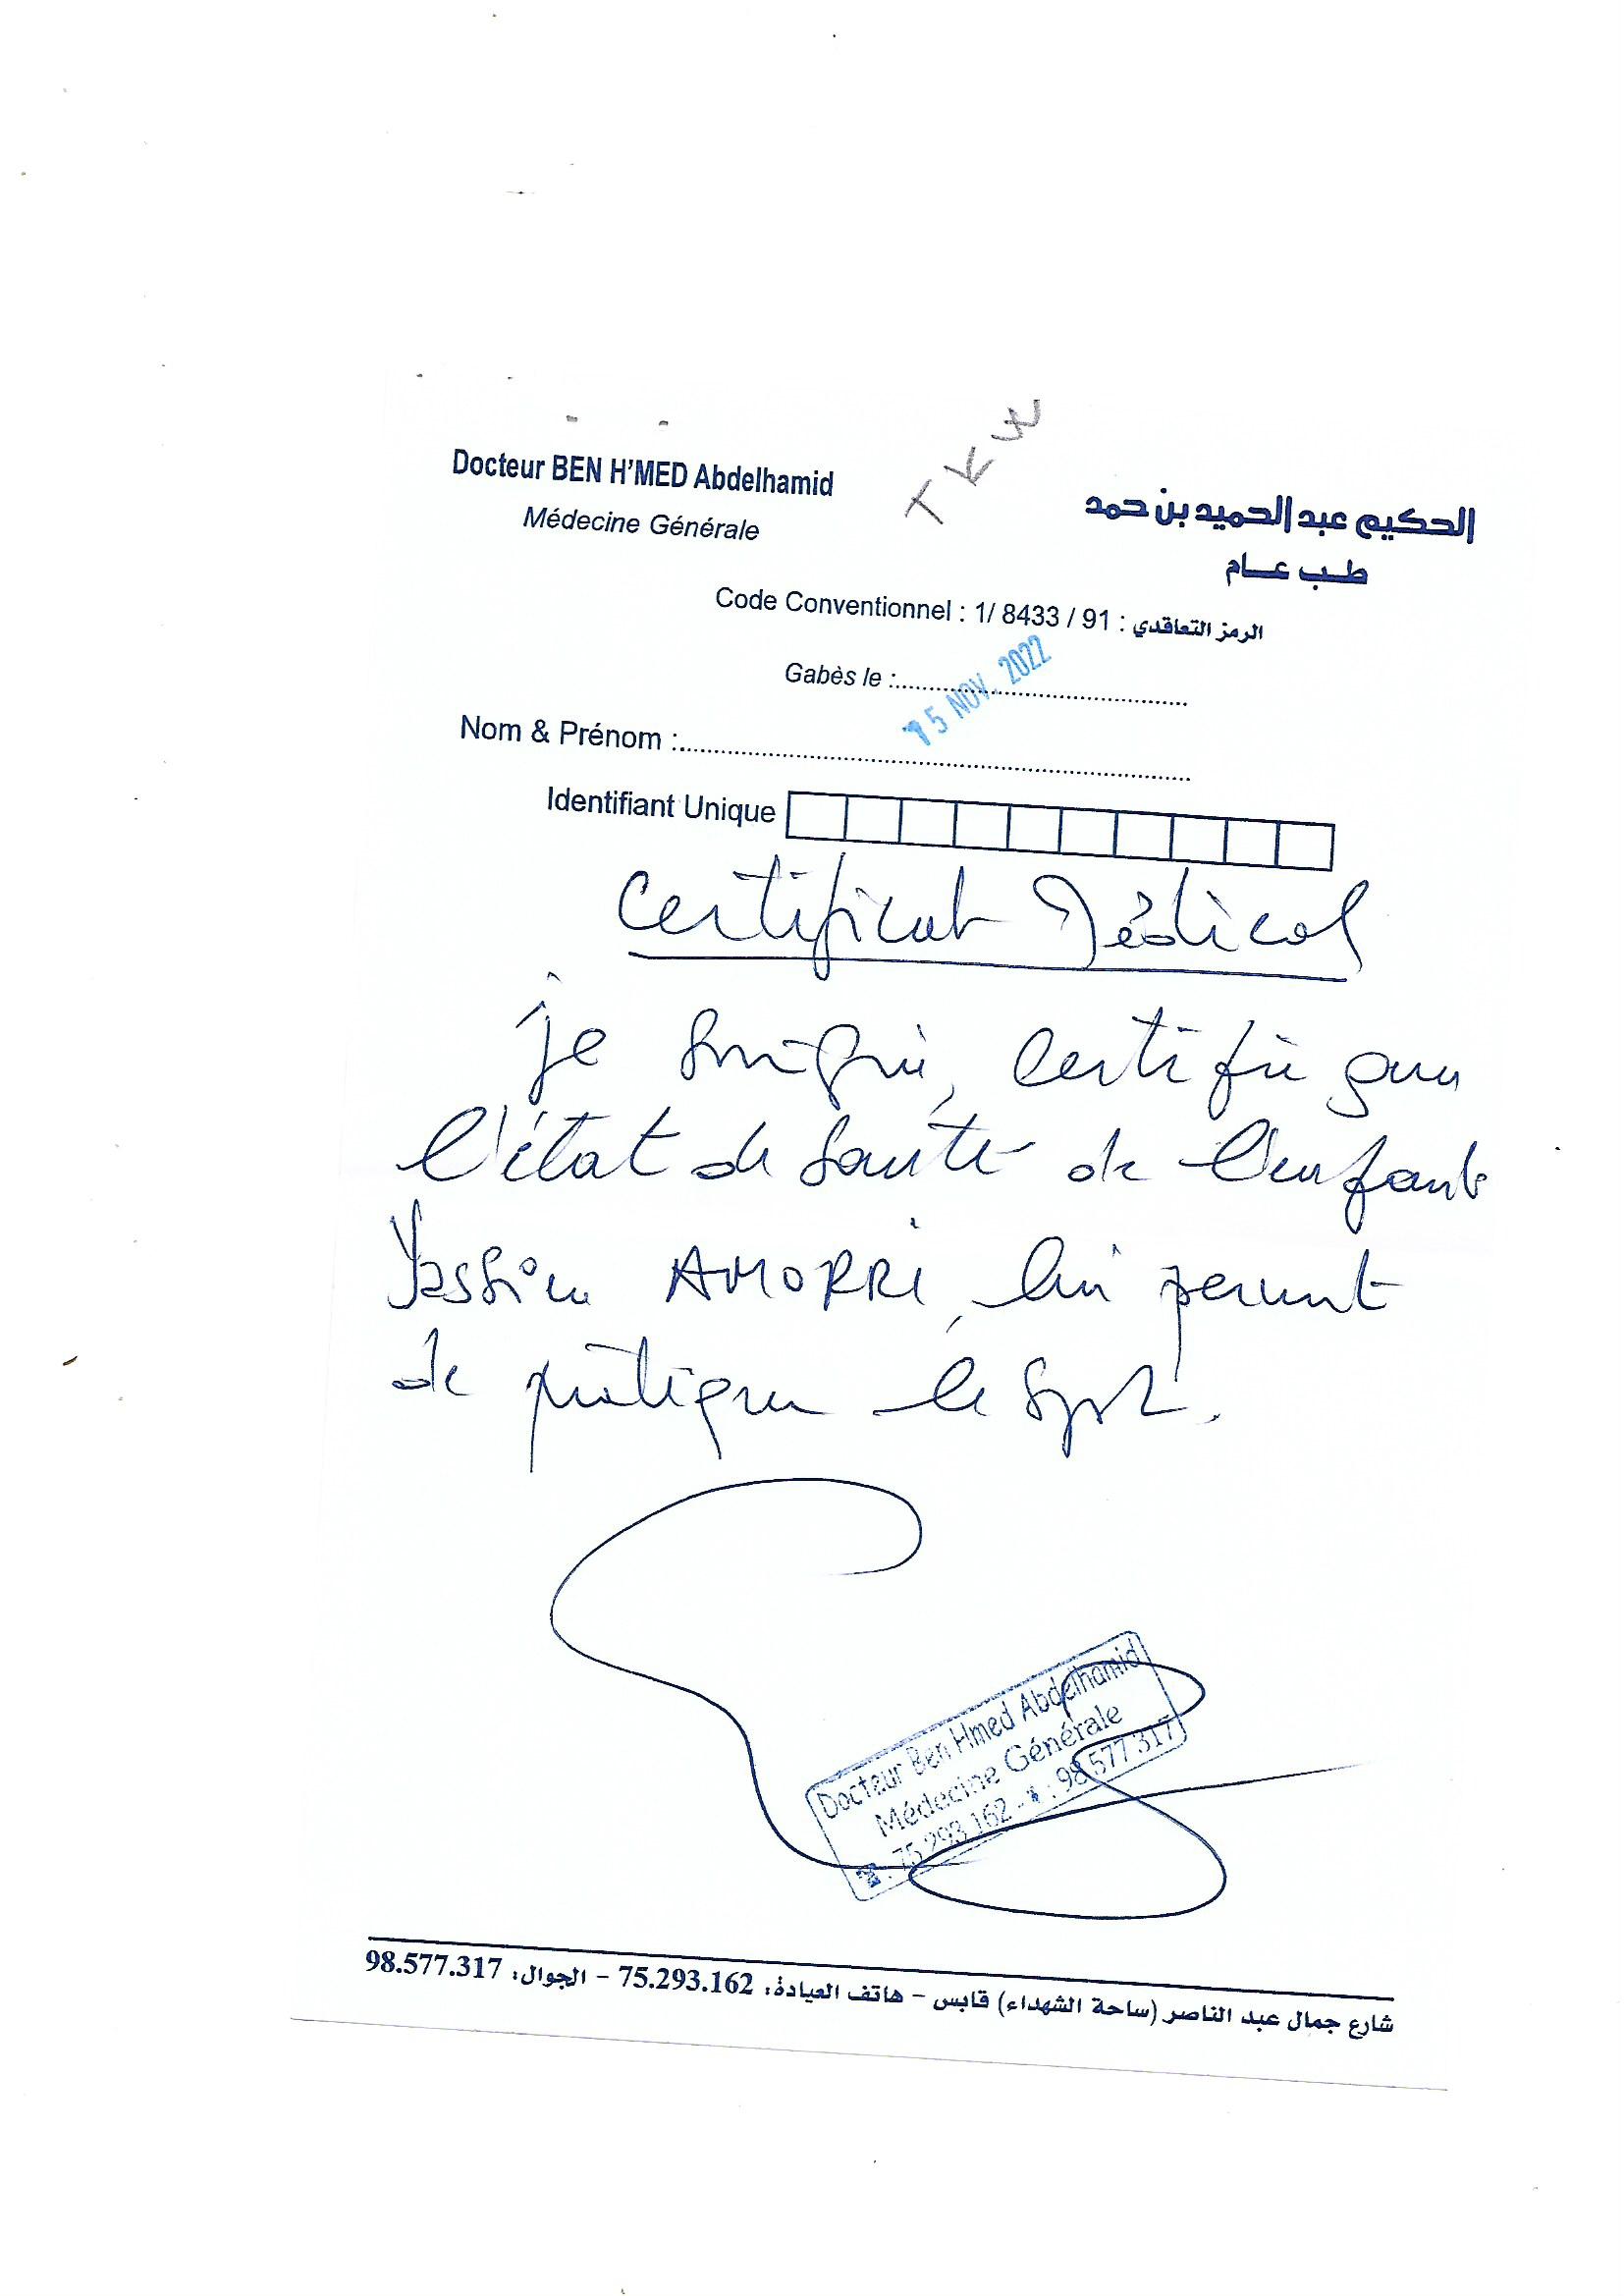 TKW
Docteur BEN H'MED Abdelhamid
Médecine Générale
الحكيم عبد الحميد بن حمد
طب عام
Code Conventionnel : 1/ 8433 / 91 : الرمز التعاقدي
Gabès le :
15 NOV. 2022
Nom & Prénom :
Identifiant Unique
Certificat Médical
je soussigné, certifie que
l'état de santé de l'enfant
Yassin AMORRI, lui permet
de pratiquer le sport.
Docteur Ben Hmed Abdelhamid
Médecine Générale
☎: 75 293 162 - * : 98 577 317
شارع جمال عبد الناصر (ساحة الشهداء) قابس - هاتف العيادة: 75.293.162 - الجوال: 98.577.317